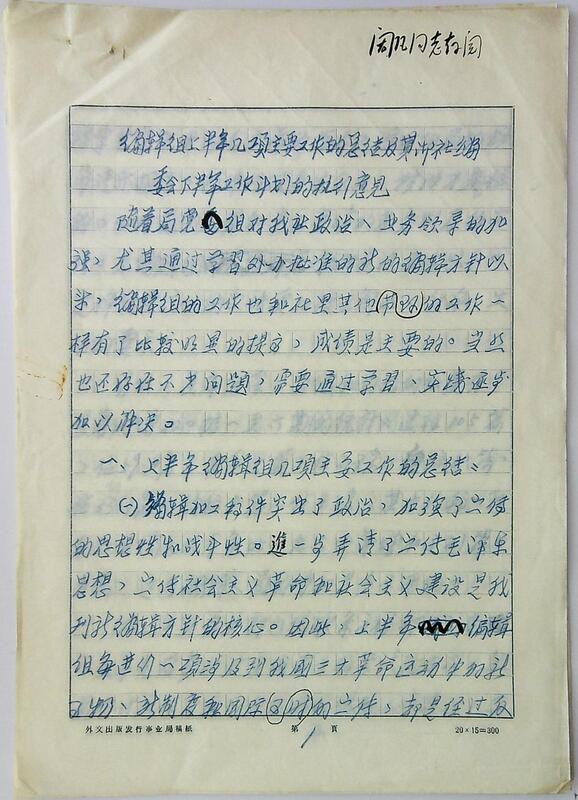 同志存阅
编辑组上半年几项主要工作的总结及其对社编
委会下半年工作计划的批判意见
随着局党组对我社政治、业务领导的加
强，尤其通过学习外办批准的新的编辑方针以
来，编辑组的工作也和社里其他部门的工作一
样有了比较明显的提高，成绩是主要的。当然
也还存在不少问题，需要通过学习、实践逐步
加以解决。
一、上半年编辑组几项主要工作的总结：
㈠编辑加工稿件突出了政治，加强了宣传
的思想性和战斗性。進一步弄清了宣传毛泽东
思想，宣传社会主义革命和社会主义建设是我
刊新编辑方针的核心。因此，上半年编辑
组每进行一项涉及到我國三大革命运动中的新
事物、新制度和国际的宣传，都是经过反
外文出版发行事业局稿紙
第1頁
20×15=300